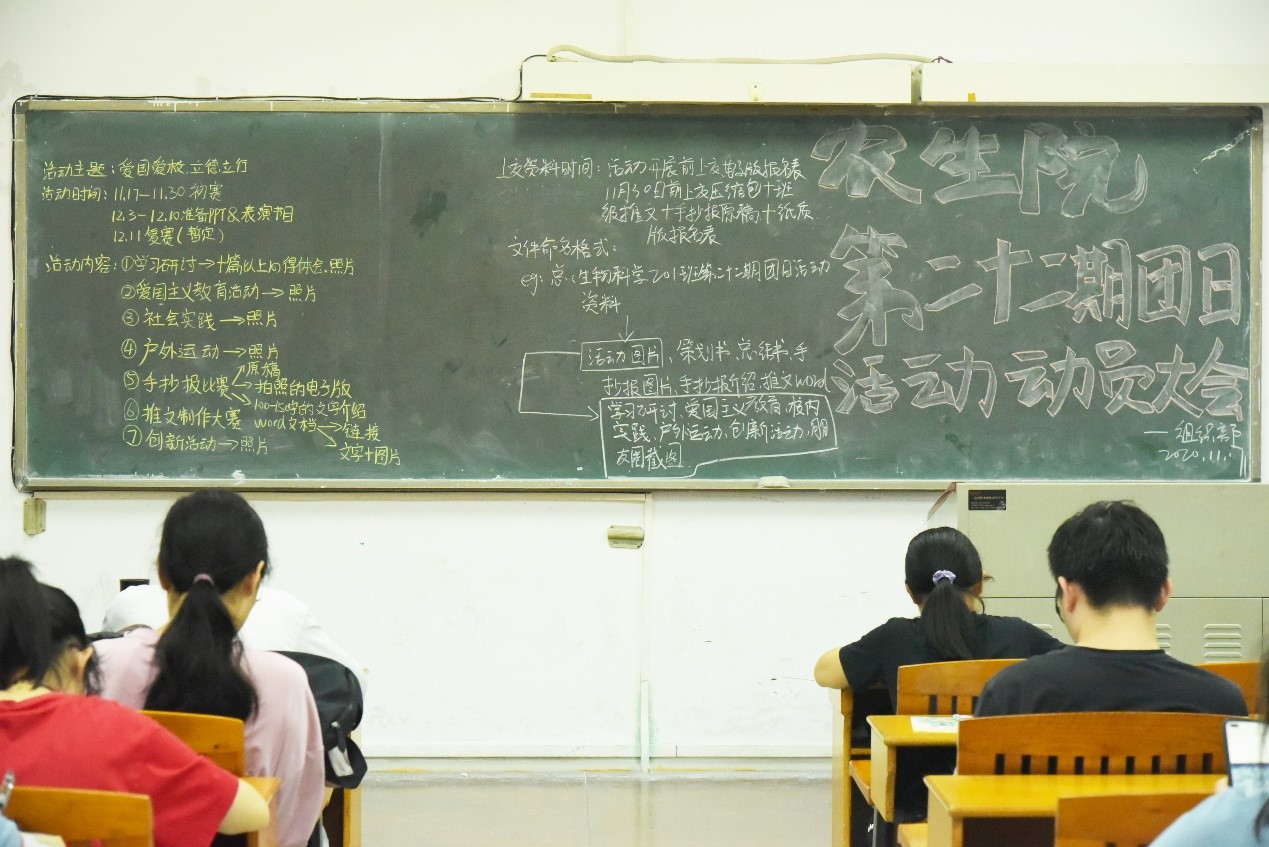 活动主题：爱国爱校,立德立行
活动时间：11.17—11.30 初赛
12.3—12.10准备PPT&表演节目
12.11 复赛(暂定)
活动内容：①学习研讨→十篇以上心得体会、照片
②爱国主义教育活动→照片
③社会实践→照片
④户外运动→照片
原稿
⑤手抄报比赛→拍照的电子版
100-150字的文字介绍
⑥推文制作大赛 word文档→链接
⑦创新活动→照片
文字+图片
上交资料时间：活动开展前上交电子版报名表
11月30日前上交压缩包+班
级推文+手抄报原稿+纸质
版报名表
文件命名格式：
eg：总(生物科学201班第二十二期团日活动
资料
↓
活动图片、策划书、总结书、手
抄报图片、手抄报介绍、推文word
学习研讨、爱国主义教育、校内
实践、户外运动、创新活动、朋
友圈截图
农生院
第二十二期团日
活动动员大会
—组织部
2020.11.17